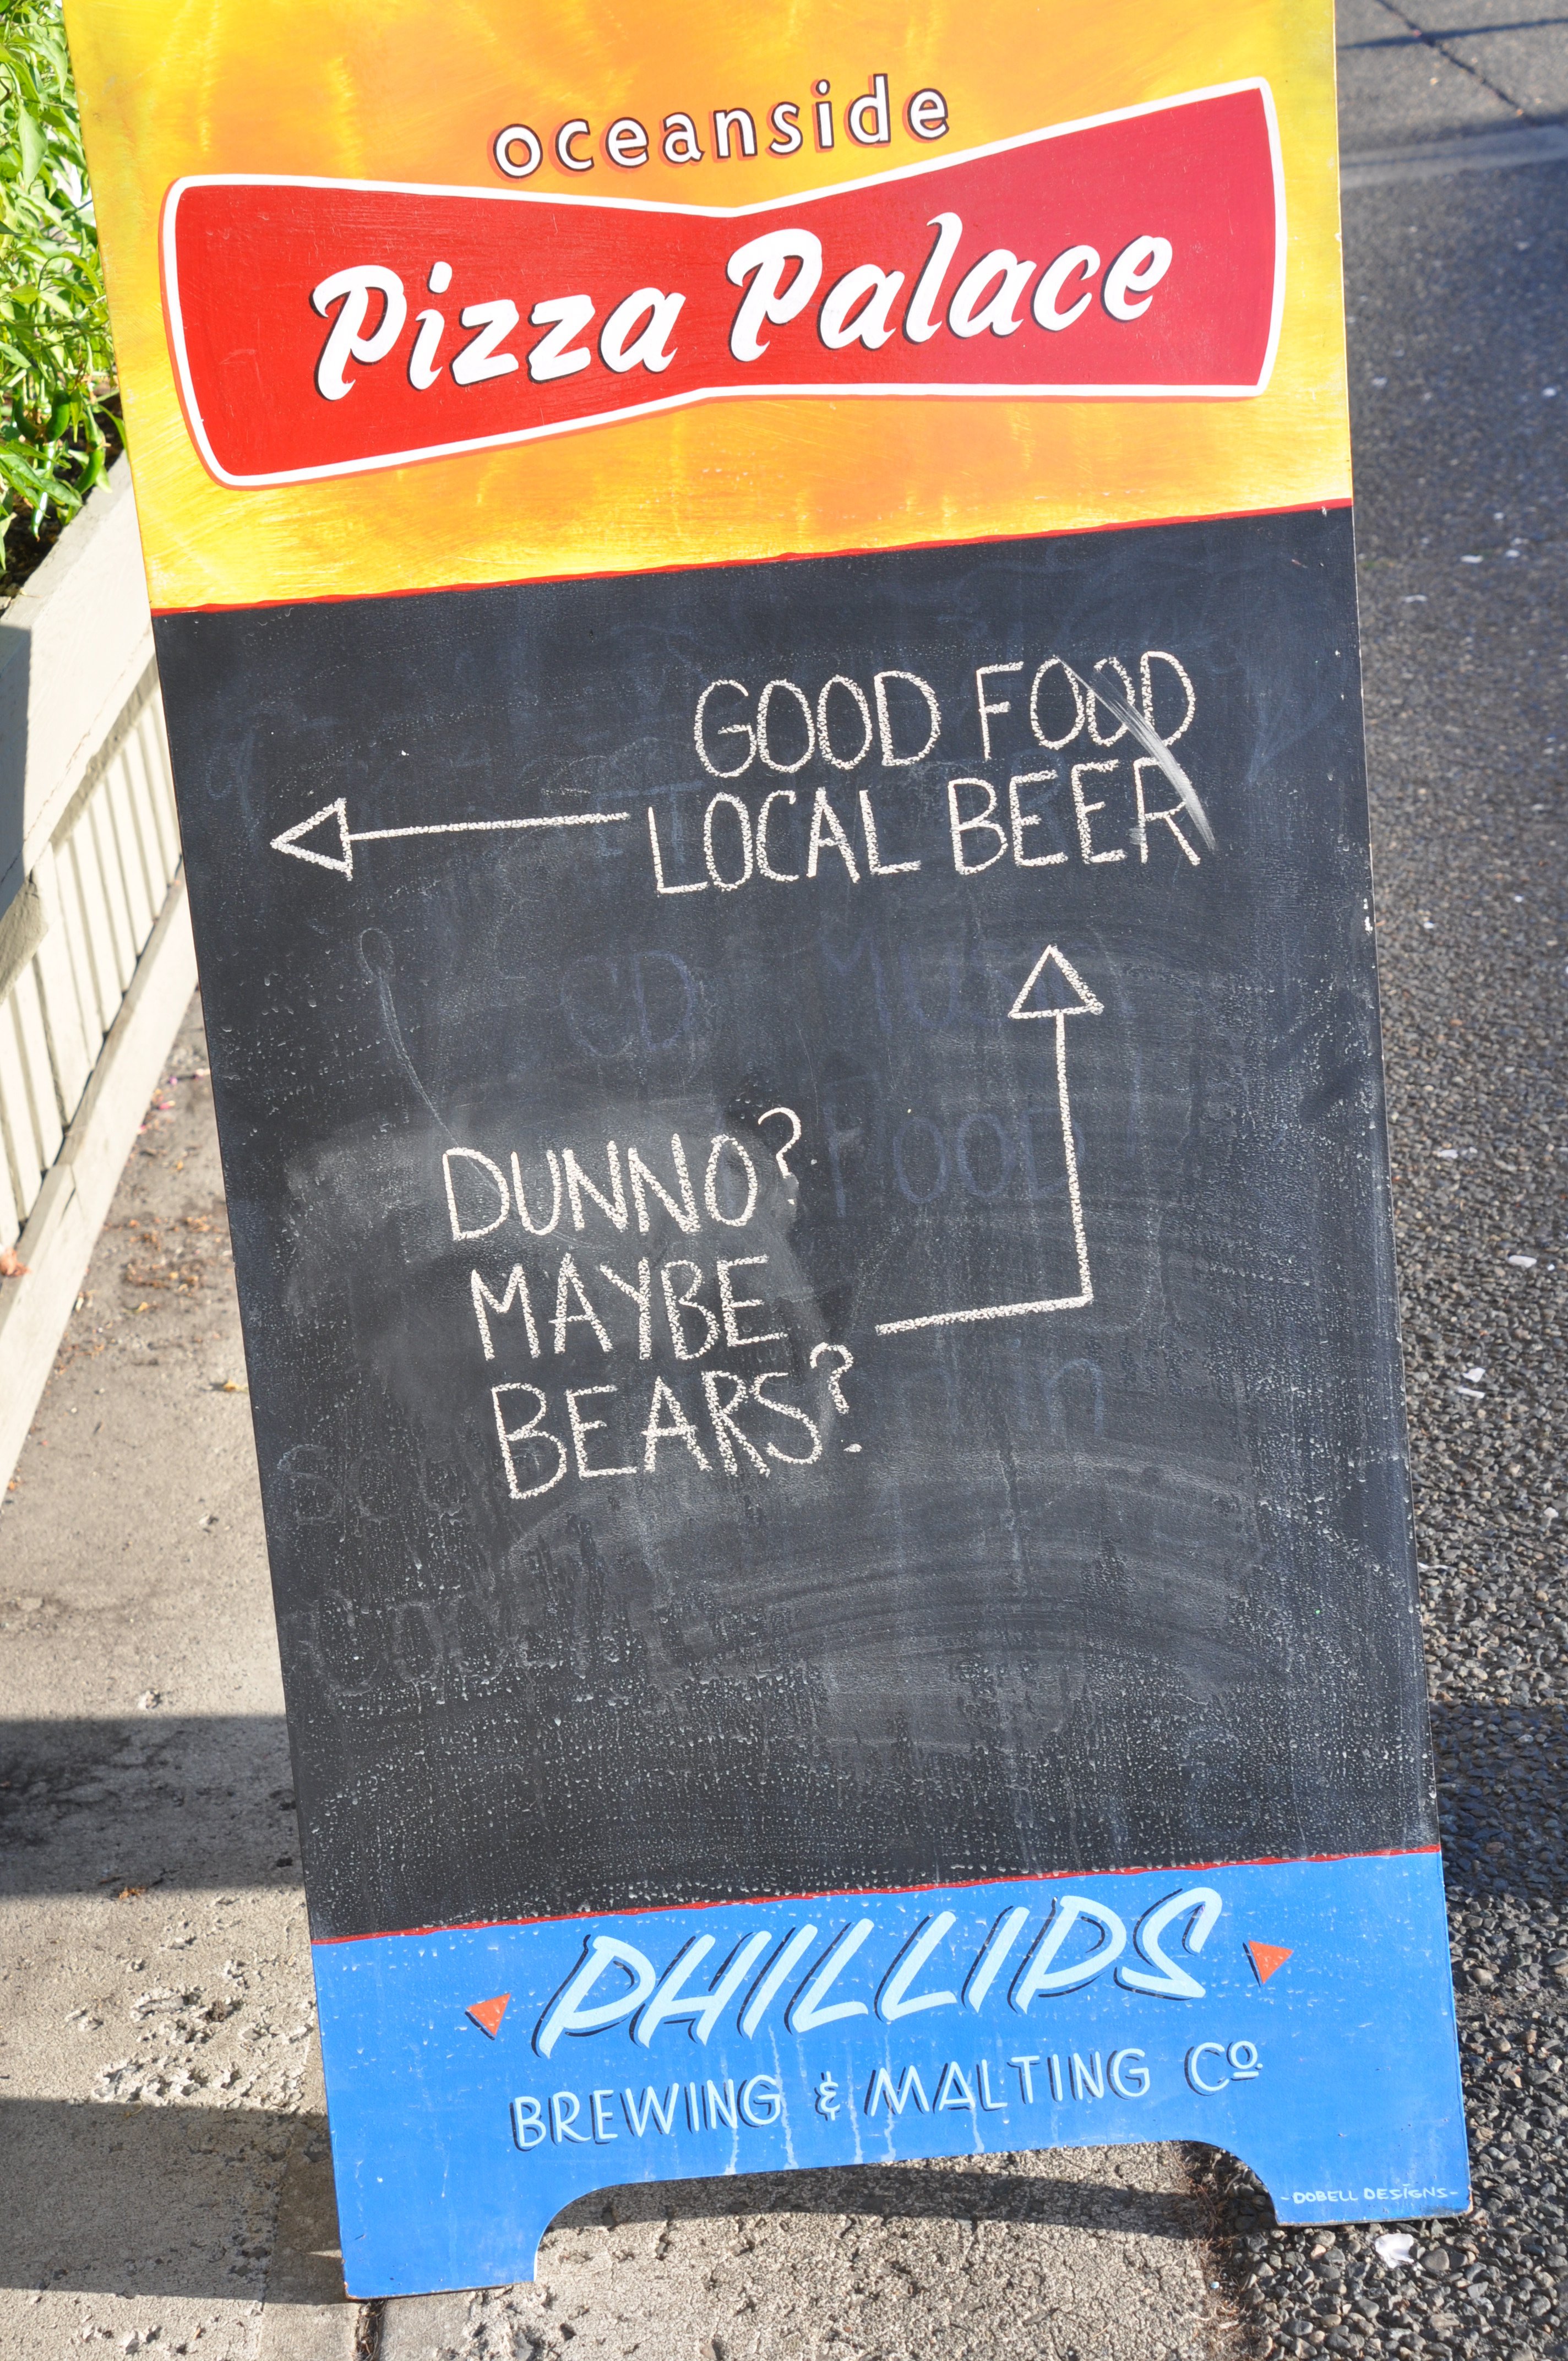 oceanside
Pizza Palace
GOOD FOOD
LOCAL BEER
DUNNO?
MAYBE
BEARS?
PHILLIPS
BREWING & MALTING Cº
-DOBELL DESIGNS-